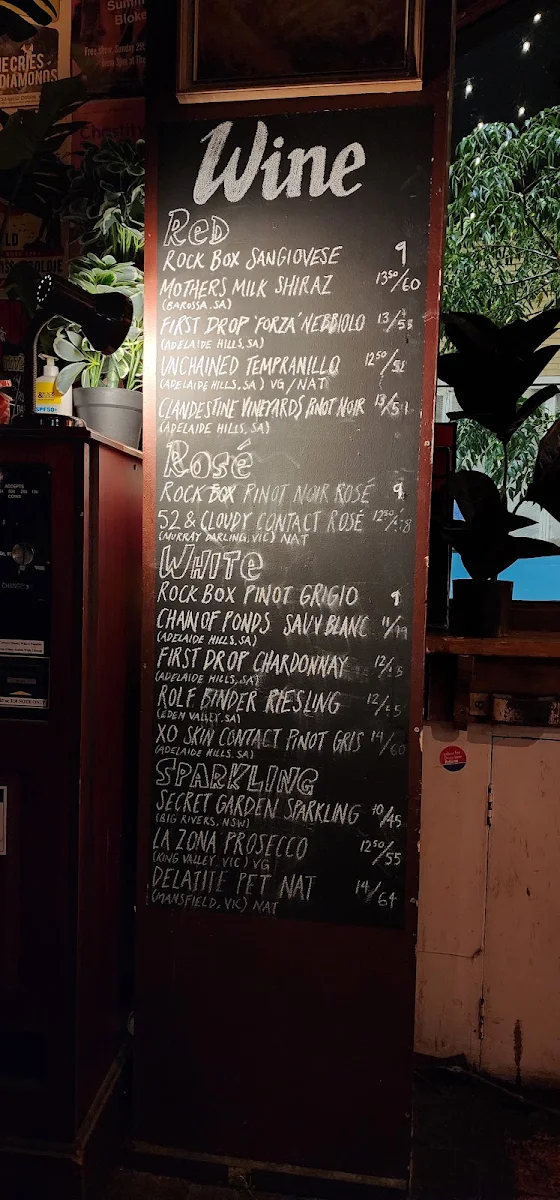 Wine
RED
ROCK BOX SANGIOVESE 9
MOTHERS MILK SHIRAZ 1350/60
(BAROSSA. SA)
FIRST DROP 'FORZA' NEBBIOLO 13/
(ADELAIDE HILLS, SA)
UNCHAINED TEMPRANILLO 1250/
(ADELAIDE HILLS, SA) VG/NAT
CLANDESTINE VINEYARDS PINOT NOIR 13/
(ADELAIDE HILLS, SA)
Rosé
ROCK BOX PINOT NOIR ROSÉ 9
52 & CLOUDY CONTACT ROSÉ 1250/
(MURRAY DARLING, VIC) NAT
WHITE
ROCK BOX PINOT GRIGIO 9
CHAIN OF PONDS SAVY BLANC 11/
(ADELAIDE HILLS, SA)
FIRST DROP CHARDONNAY 12/
(ADELAIDE HILLS, SA)
ROLF BINDER RIESLING 12/
(EDEN VALLEY. SA)
XO SKIN CONTACT PINOT GRIS 14/60
(ADELAIDE HILLS. SA)
SPARKLING
SECRET GARDEN SPARKLING 10/45
(BIG RIVERS, NSW)
LA ZONA PROSECCO 1250/55
(KING VALLEY. VIC) VG
DELATITE PET NAT 14/64
(MANSFIELD, VIC) NAT